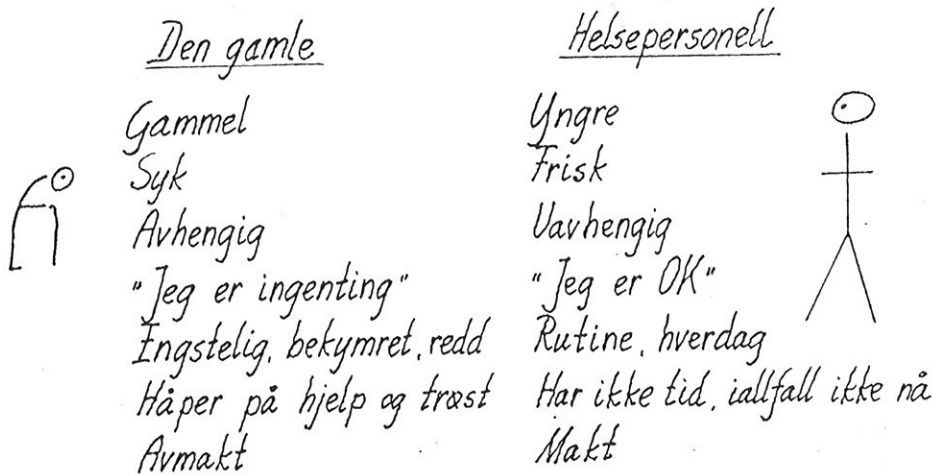 Den gamle
Gammel
Syk
Avhengig
"Jeg er ingenting"
Engstelig, bekymret, redd
Håper på hjelp og trøst
Avmakt
Helsepersonell
Yngre
Frisk
Uavhengig
"Jeg er OK"
Rutine, hverdag
Har ikke tid, iallfall ikke nå
Makt